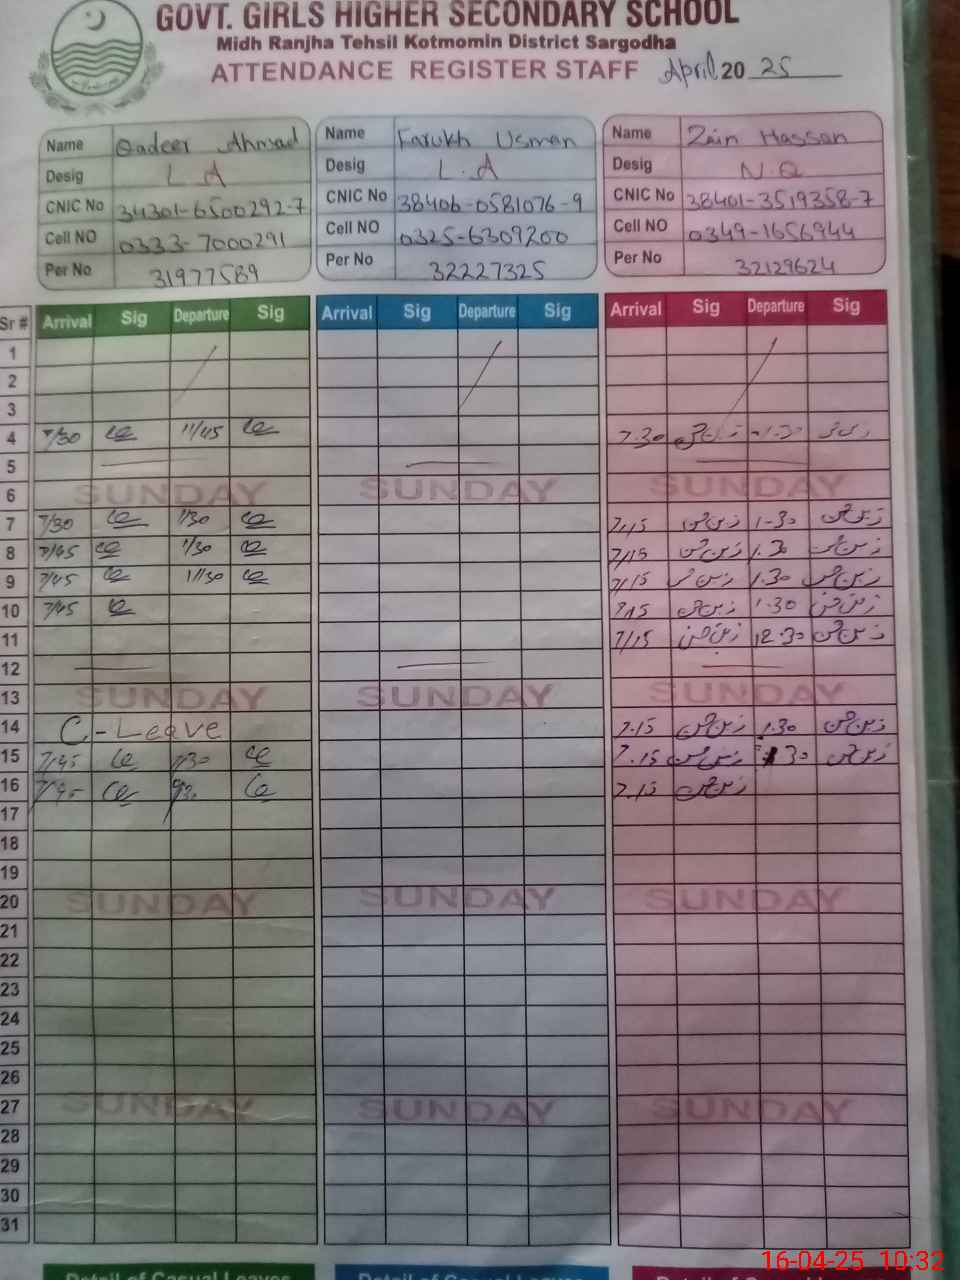 GOVT. GIRLS HIGHER SECONDARY SCHOOL
Midh Ranjha Tehsil Kotmomin District Sargodha
ATTENDANCE REGISTER STAFF April 20 25
Name Qadeer Ahmad Name Farukh Usman Name Zain Hassan
Desig L A Desig L.A Desig N.Q
CNIC No 34301-6500292-7 CNIC No 38406-0581076-9 CNIC No 38401-3519358-7
Cell NO 0333-7000291 Cell NO 0325-6309200 Cell NO 0349-1656944
Per No 31977589 Per No 32227325 Per No 32129624
Sr # Arrival Sig Departure Sig Arrival Sig Departure Sig Arrival Sig Departure Sig
1
2
3
4 7/30 11/45 7.30 زین حسن 1.30
5
6 SUNDAY SUNDAY SUNDAY
7 7/30 1/30 7,15 زین حسن 1-30 زین حسن
8 7/45 1/30 7/15 زین حسن 1.30 زین حسن
9 7/45 11/30 7/15 زین حسن 1.30 زین حسن
10 7/45 7,15 زین حسن 1.30 زین حسن
11 7/15 زین حسن 12.30 زین حسن
12
13 SUNDAY SUNDAY SUNDAY
14 C-Leave 7.15 زین حسن 1.30 زین حسن
15 7/45 1/30 7.15 زین حسن 1.30 زین حسن
16 7/45 7.15 زین حسن
17
18
19
20 SUNDAY SUNDAY SUNDAY
21
22
23
24
25
26
27 SUNDAY SUNDAY SUNDAY
28
29
30
31
Detail of Casual Leaves Detail of Casual Leaves Detail of Casual L
16-04-25 10:32